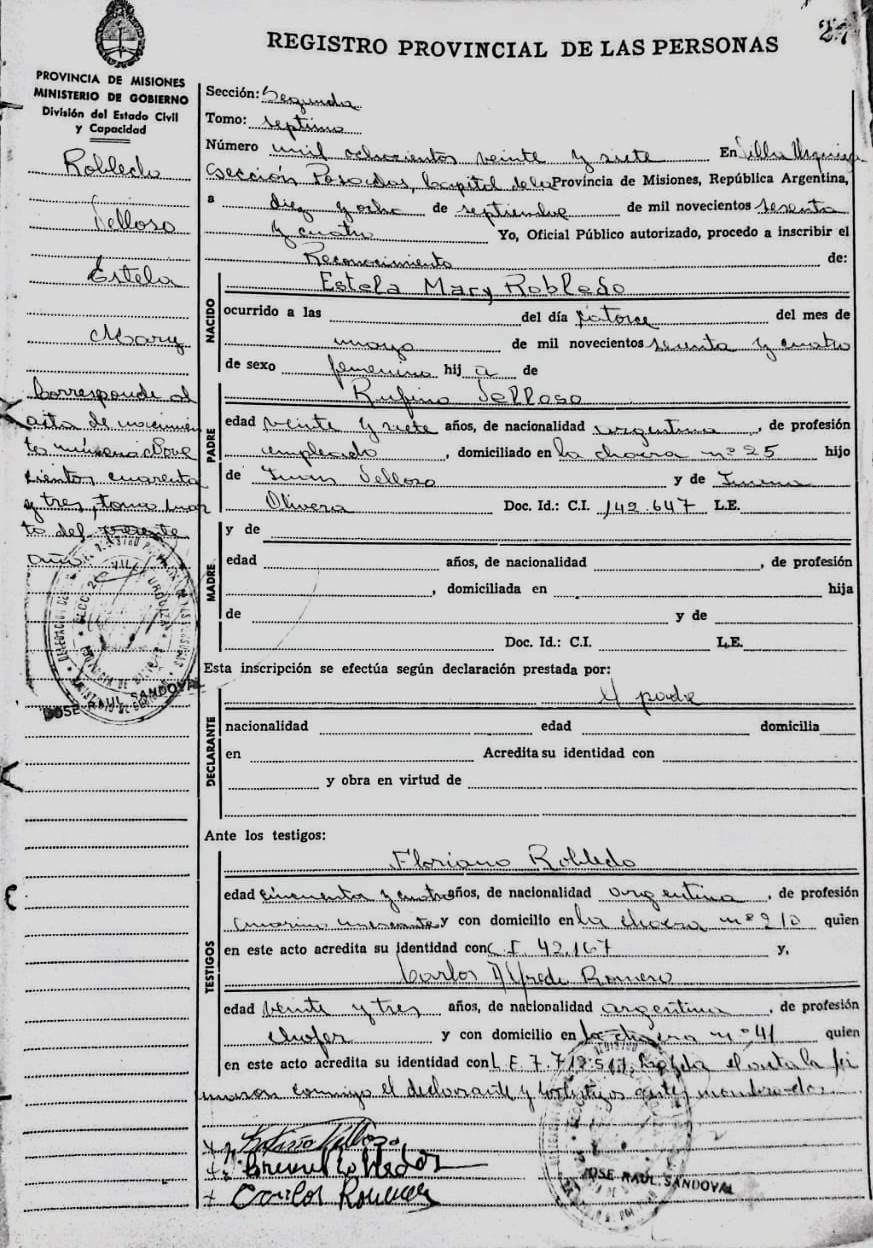 27
REGISTRO PROVINCIAL DE LAS PERSONAS
PROVINCIA DE MISIONES
MINISTERIO DE GOBIERNO
División del Estado Civil
y Capacidad
Robledo
Velloso
Estela
Mary
Corresponde al
acta de nacimien
to número nove
cientos cuarenta
y tres, tomo cuar
to del presente
año.
JOSE RAUL SANDOVAL
Sección: Segunda
Tomo: septimo
Número mil ochocientos veinte y siete En Villa Urquiza
Sección Posadas, Capital de la Provincia de Misiones, República Argentina,
a diez y ocho de septiembre de mil novecientos sesenta
y cuatro Yo, Oficial Público autorizado, procedo a inscribir el
Reconocimiento de:
NACIDO
Estela Mary Robledo
ocurrido a las del día catorce del mes de
mayo de mil novecientos sesenta y cuatro
de sexo femenino hij a de
PADRE
Rufino Velloso
edad veinte y siete años, de nacionalidad argentina, de profesión
empleado, domiciliado en la chacra nº 25 hijo
de Juan Velloso y de
Olivera Doc. Id.: C.I. 142.647 L.E.
MADRE
y de
edad años, de nacionalidad , de profesión
, domiciliada en hija
de y de
Doc. Id.: C.I. L.E.
Esta inscripción se efectúa según declaración prestada por:
DECLARANTE
el padre
nacionalidad edad domicilia
en Acredita su identidad con
y obra en virtud de
Ante los testigos:
TESTIGOS
Floriano Robledo
edad cincuenta y cuatro años, de nacionalidad argentina, de profesión
marino mercante y con domicilio en la chacra nº 210 quien
en este acto acredita su identidad con C.I 42.167 y,
Carlos Alfredo Romero
edad veinte y tres años, de nacionalidad argentina, de profesión
chofer y con domicilio en la chacra nº 41 quien
en este acto acredita su identidad con L.E. el acta la fir
maron conmigo el declarante y los testigos mencionados
Robledo
Carlos Romero
JOSE RAUL SANDOVAL